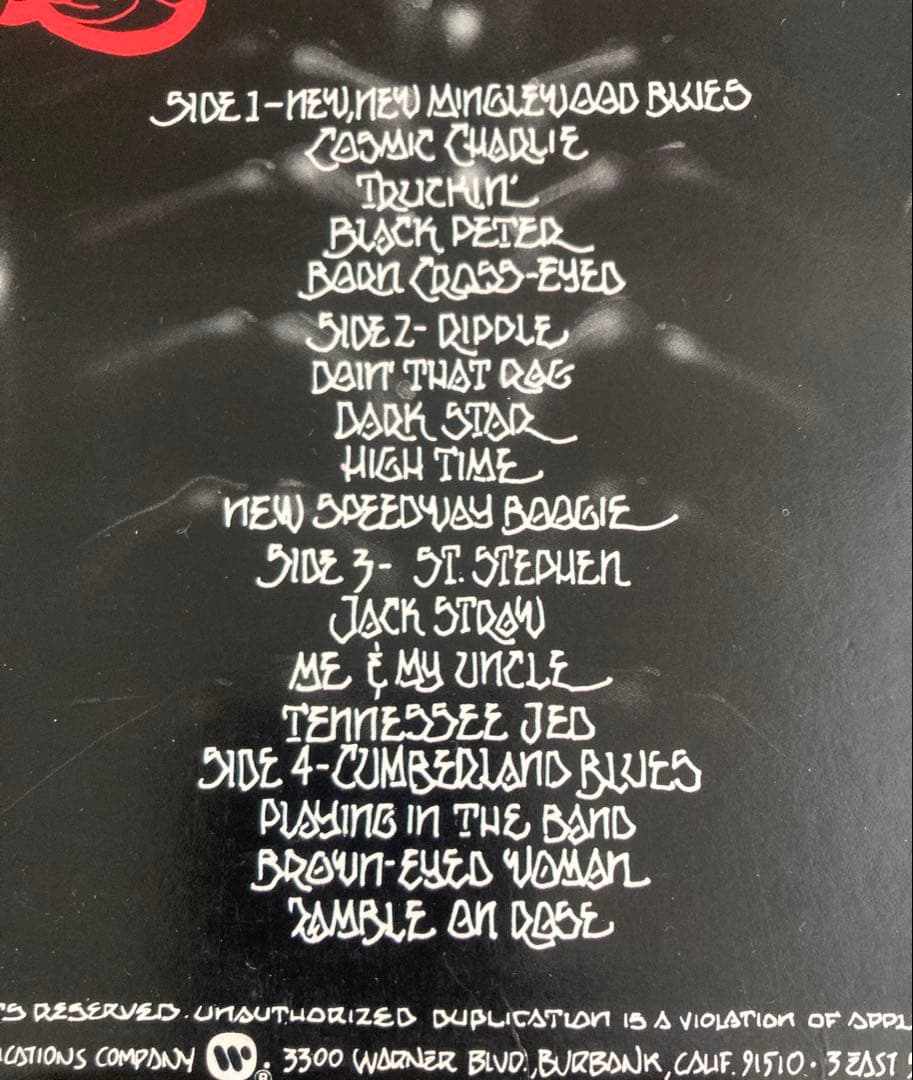 SIDE 1-NEW, NEW MINGLEWOOD BLUES
COSMIC CHARLIE
TRUCKIN'
BLACK PETER
BORN CROSS-EYED
SIDE 2- RIPPLE
DOIN' THAT RAG
DARK STAR
HIGH TIME
NEW SPEEDWAY BOOGIE
SIDE 3- ST. STEPHEN
JACK STRAW
ME & MY UNCLE
TENNESSEE JED
SIDE 4-CUMBERLAND BLUES
PLAYING IN THE BAND
BROWN-EYED WOMAN
RAMBLE ON ROSE
TS RESERVED. UNAUTHORIZED DUPLICATION IS A VIOLATION OF APPL
ICATIONS COMPANY W ®. 3300 WARNER BLVD., BURBANK, CALIF. 91510 · 3 EAST